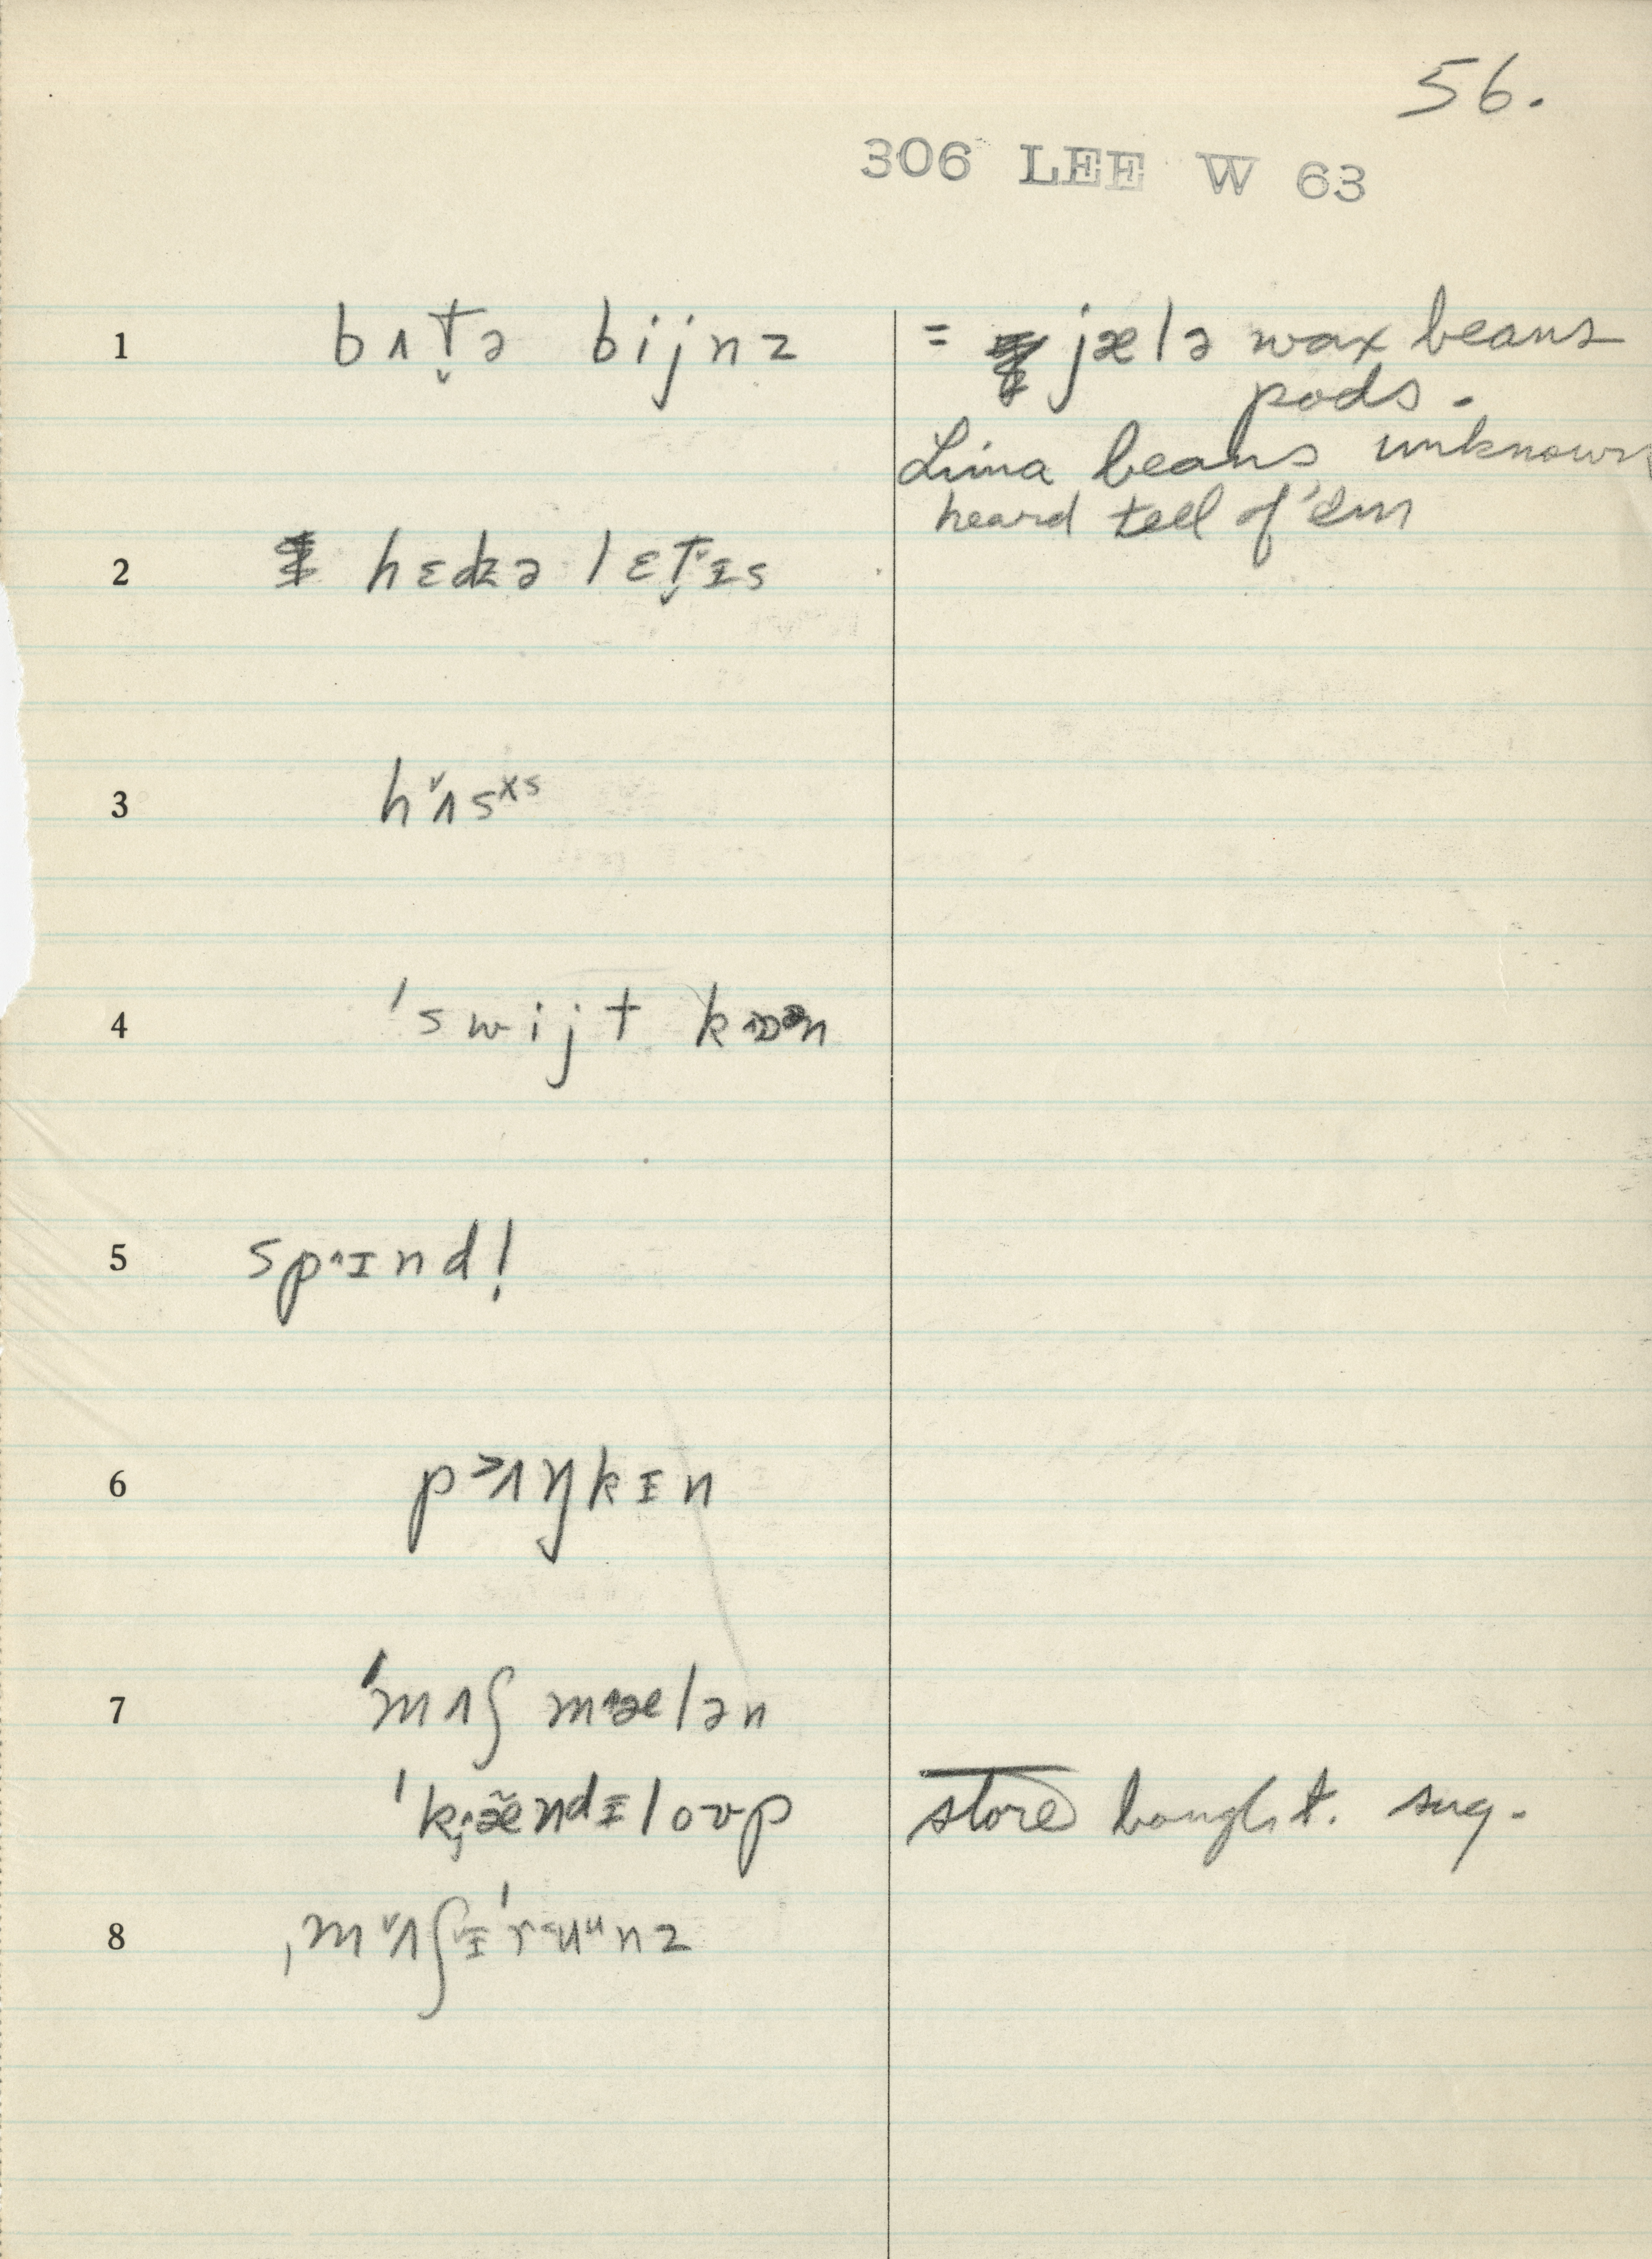 56.
306 LEE W 63
1 bʌt̬ə bijnz = jælə wax beans
pods.
Lima beans unknown
heard tell of 'em
2 hɛdɪz ə lɛt̬ɪs
3 hʌsˣˢ
4 ˈswijt kɒən
5 spɪnd!
6 pʌŋkɪn
7 ˈmʌʃ mælən
ˈkændɪloʊp store bought. sug.
8 ˌmʌʃɪˈruᵘnz